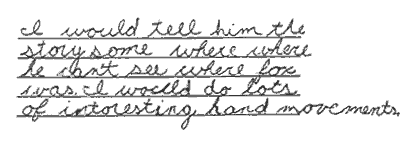 I would tell him the
story some where where
he can't see where fox
was. I would do lots
of intoresting hand movements.